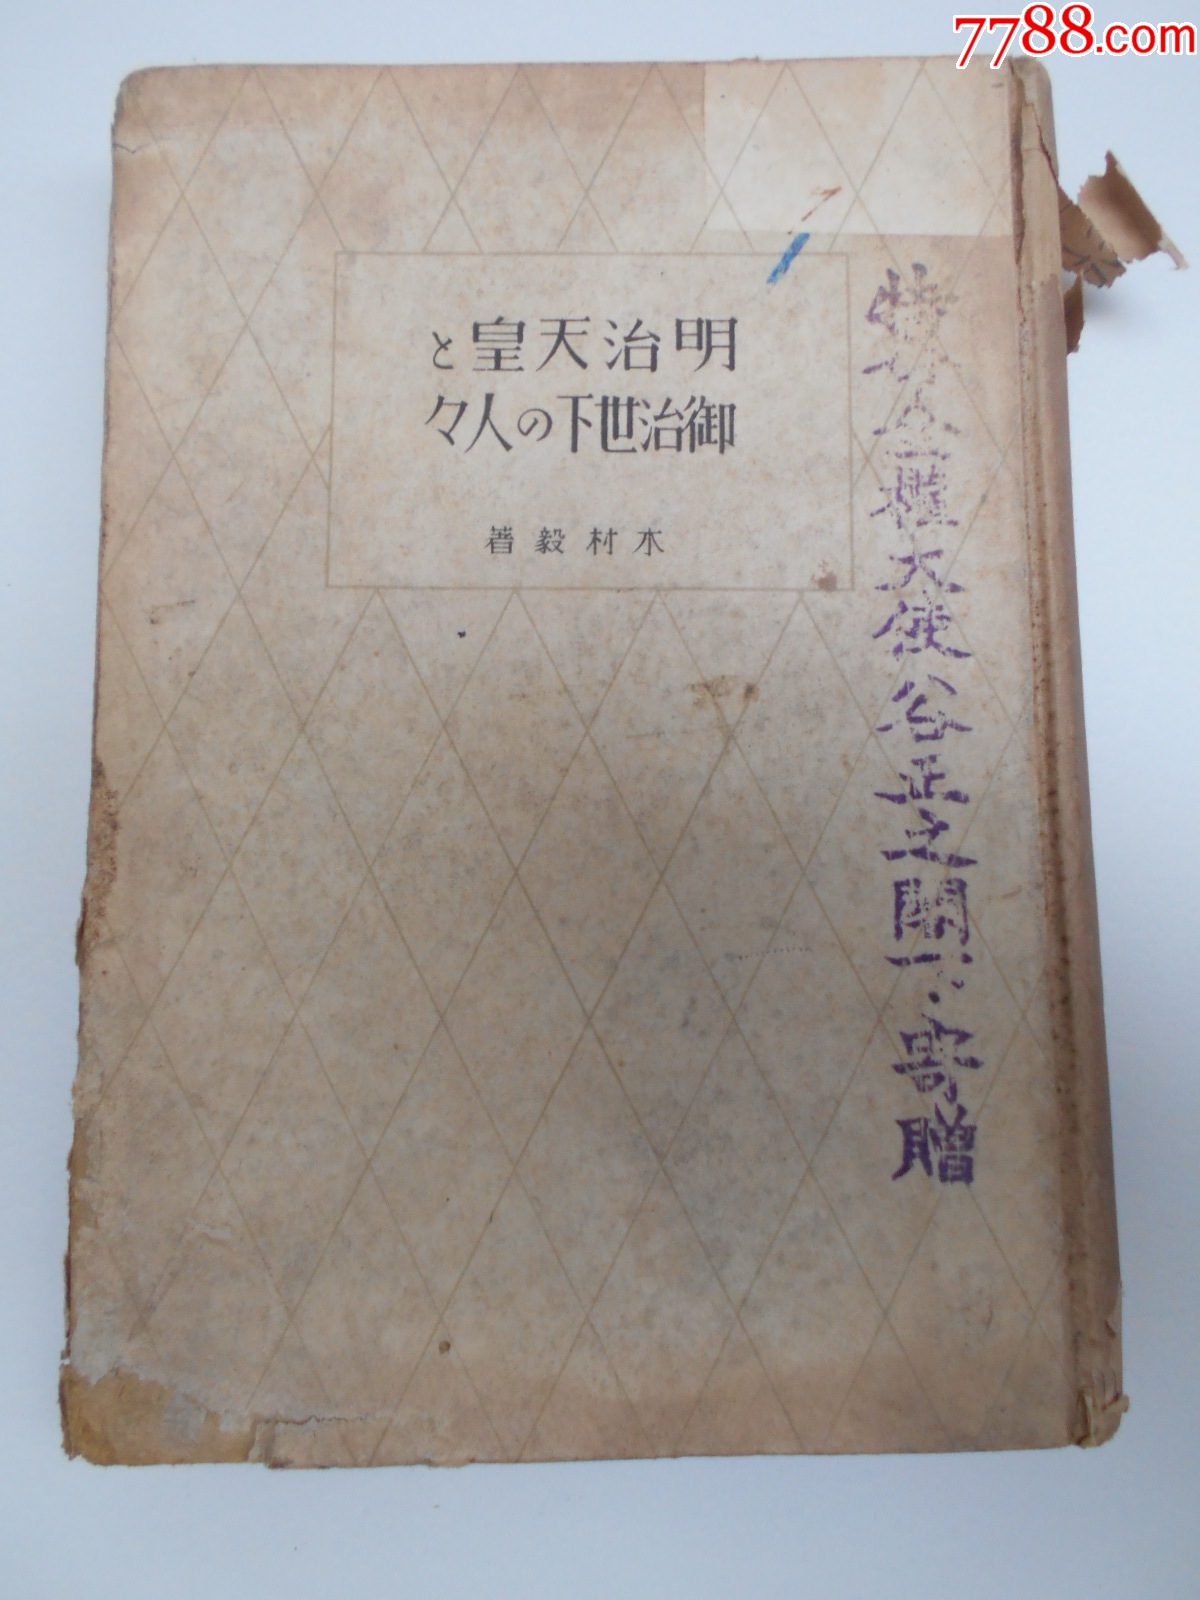 7788.com
明治天皇と
御治世下の人々
木村毅著
特命全權大使谷正之閣下寄贈